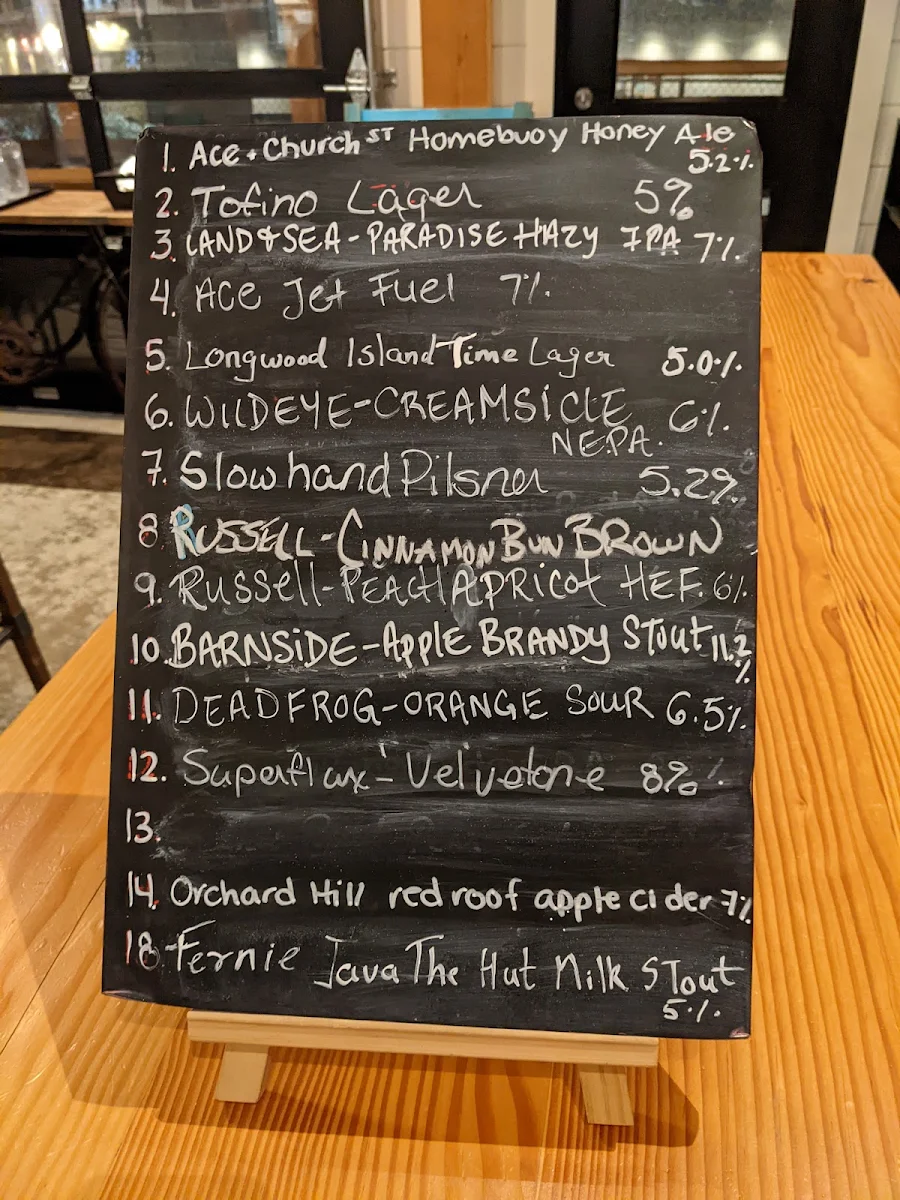 1. Ace + Church ST Homebuoy Honey Ale
5.2%
2. Tofino Lager 5%
3. LAND & SEA - PARADISE HAZY IPA 7%
4. Ace Jet Fuel 7%
5. Longwood Island Time Lager 5.0%
6. WILDEYE - CREAMSICLE 6%
NEPA.
7. Slow hand Pilsner 5.2%
8. RUSSELL - CINNAMON BUN BROWN
9. Russell - PEACH APRICOT HEF. 6%
10. BARNSIDE - Apple BRANDY STOUT 11.2
%
11. DEAD FROG - ORANGE SOUR 6.5%
12. Superflux - Velvetone 8%
13.
14. Orchard Hill red roof apple cider 7%
18 Fernie Java The Hut Milk STout
5%